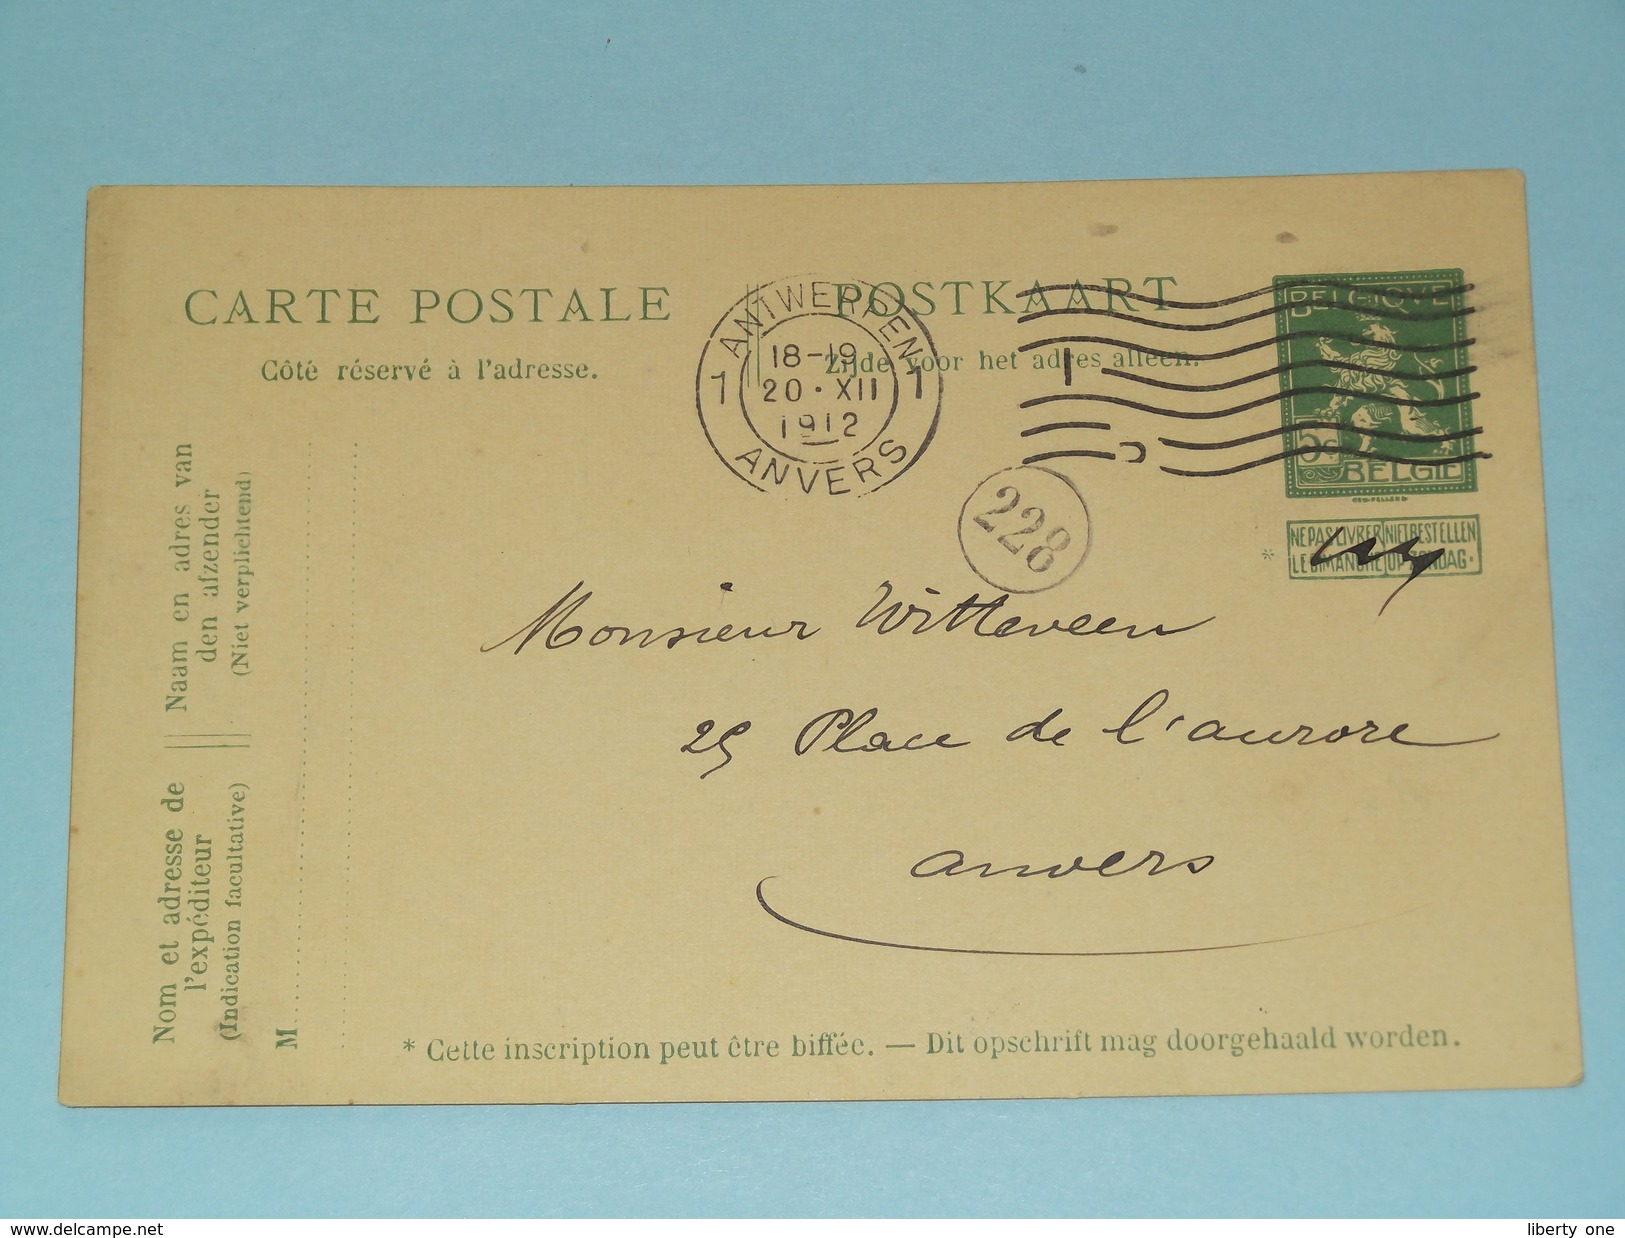 CARTE POSTALE
POSTKAART
Côté réservé à l'adresse.
Zijde voor het adres alleen.
ANTWERPEN
1 18-19 1
20·XII
1912
ANVERS
BELGIQUE
5c
BELGIË
228
NE PAS LIVRER NIET BESTELLEN
* LE DIMANCHE OP ZONDAG.
Monsieur Witteveen
25 Place de l'aurore
anvers
Naam en adres van
den afzender
(Niet verplichtend)
Nom et adresse de
l'expéditeur
(Indication facultative)
M
* Cette inscription peut être biffée. — Dit opschrift mag doorgehaald worden.
www.delcampe.net
liberty one